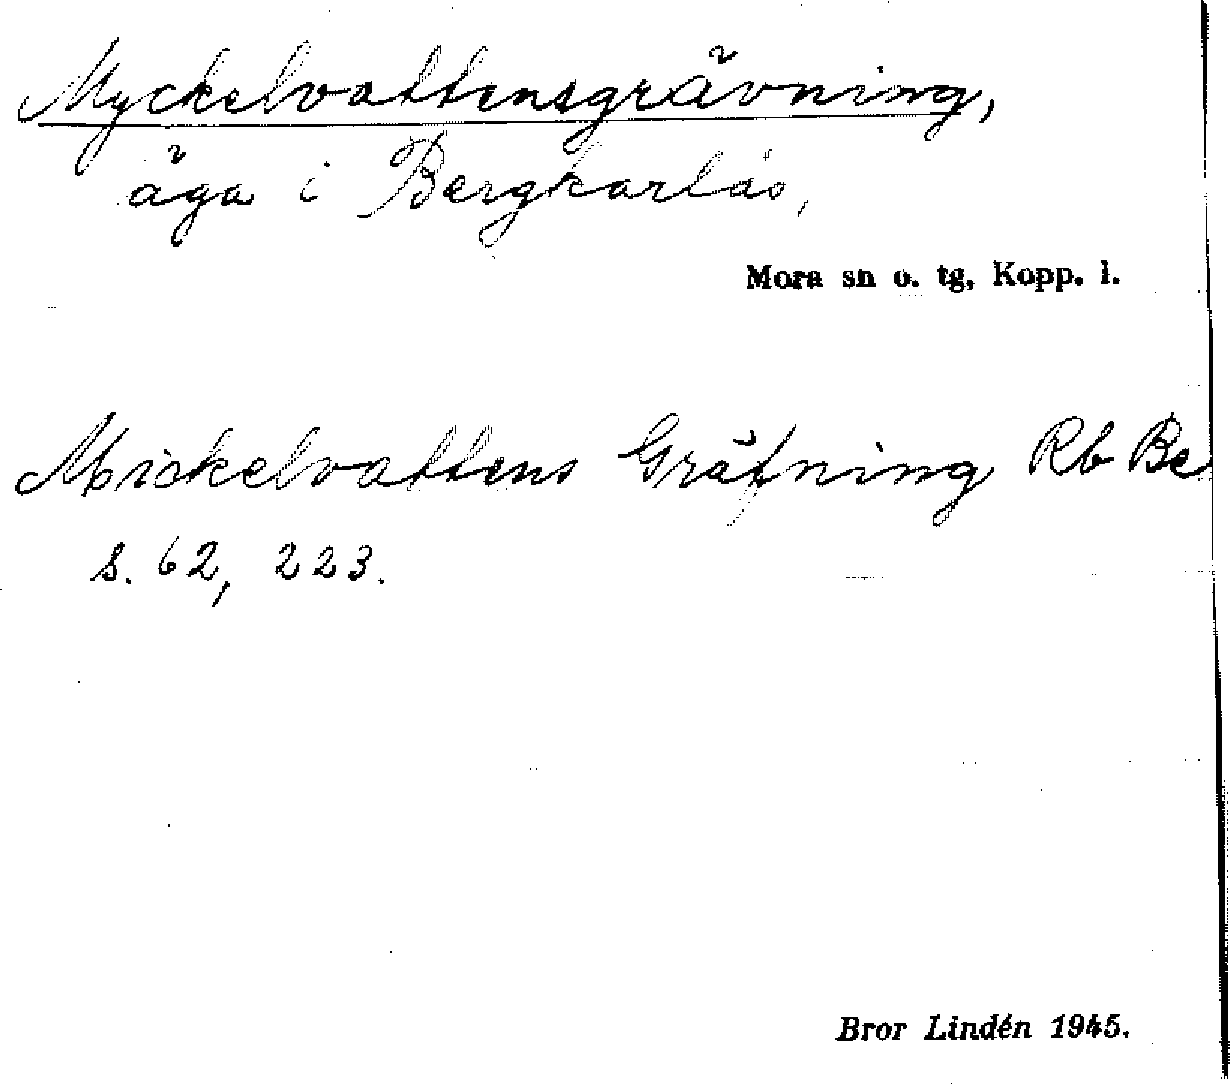 Myckelvattensgrävning,
äga i Bergkarlås,
Mora sn o. tg, Kopp. l.
Mickelvattens Gräfning Rb Be
s. 62, 223.
Bror Lindén 1945.